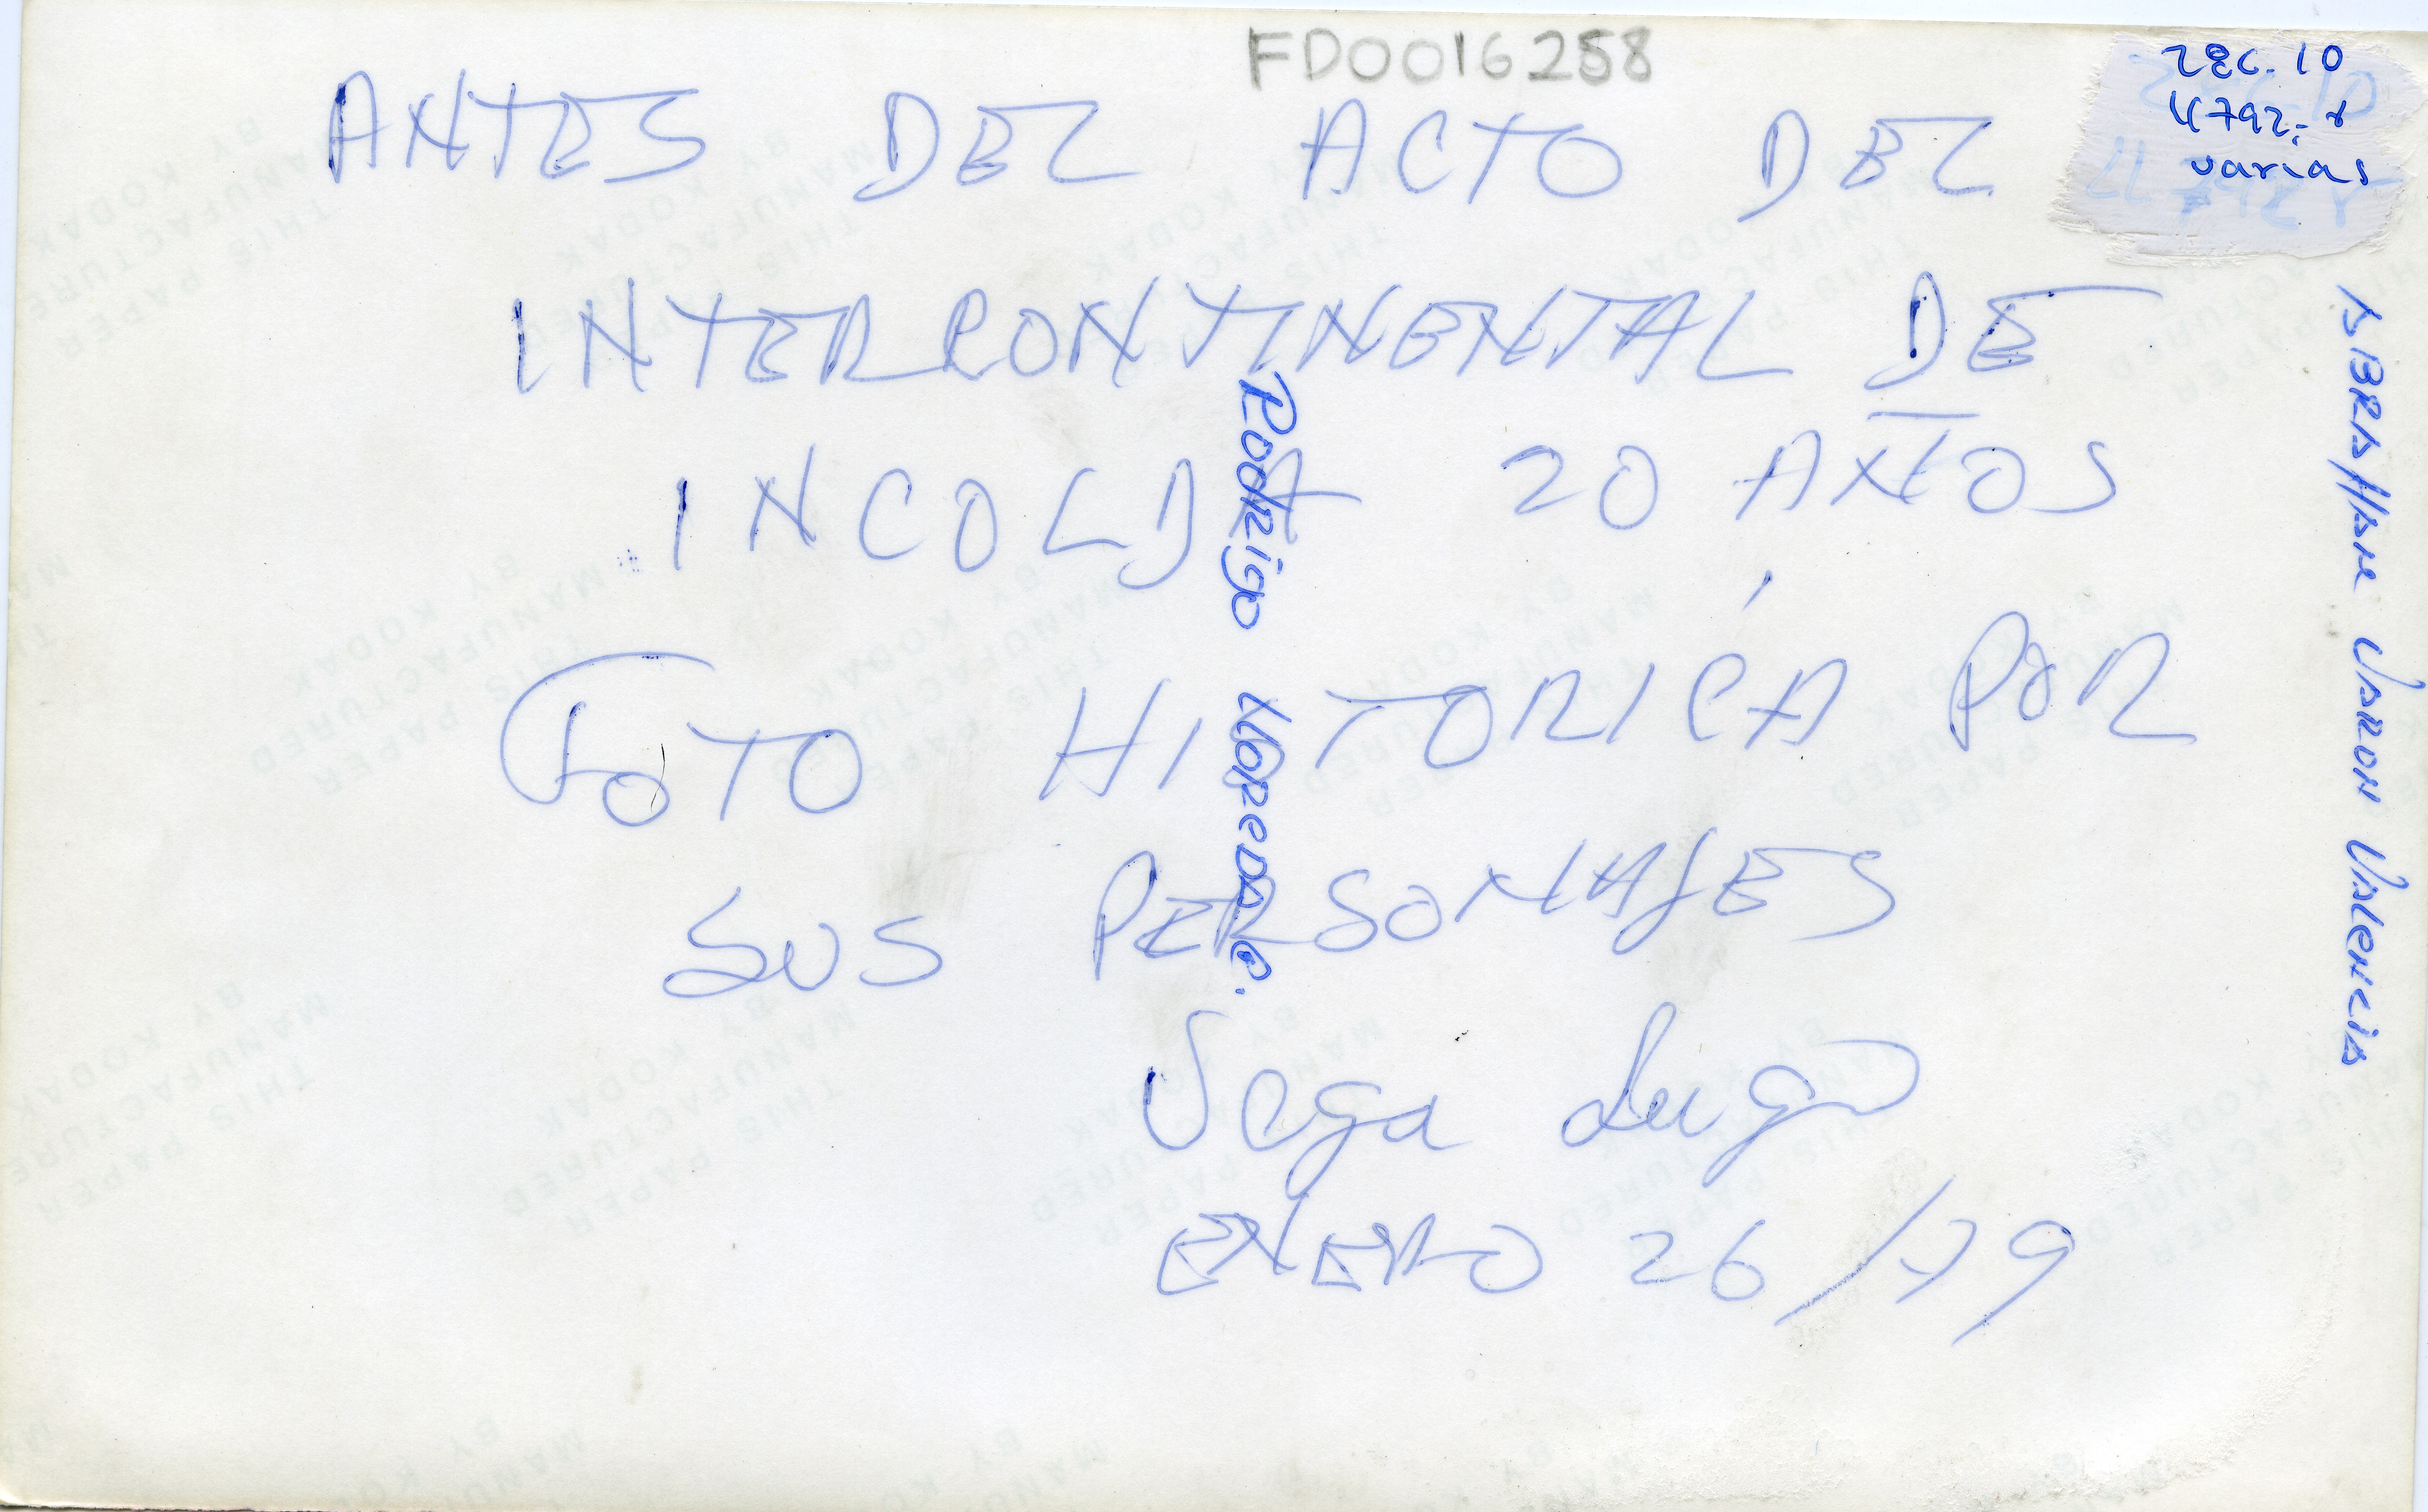 FD0016258
28c. 10
4792-r
varias
ANTES DEL ACTO DEL
INTERCONTINENTAL DE
INCOLDA 20 AÑOS
FOTO HISTORICA POR
SUS PERSONAJES
Vega Lugo
ENERO 26/79
Rodrigo Lloreda C.
ABRAHAM VARON VALENCIA
THIS PAPER
MANUFACTURED
BY KODAK